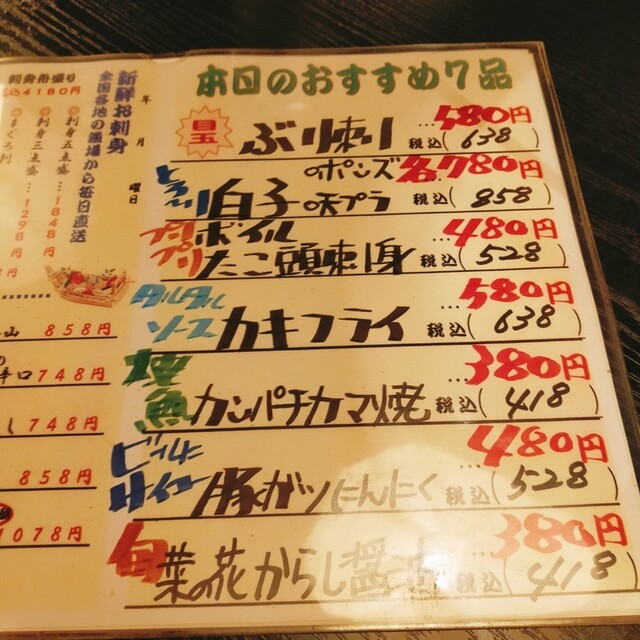 本日のおすすめ7品
目玉 ぶり刺り …580円
税込(638)
とろ〜り 白子 のポンズ 各780円
の天プラ 税込(858)
プリプリ ボイル …480円
たこ頭刺身 税込(528)
タルタル …580円
ソース カキフライ 税込(638)
…380円
焼魚 カンパチカマ焼 税込(418)
ビールに …480円
サイコー 豚ガツにんにく 税込(528)
…380円
旬 菜の花からし醤油 税込(418)
年 月 曜日
新鮮お刺身
全国各地の漁場から毎日直送
刺身五点盛…1848円
刺身三点盛…1298円
刺身舟盛り
税込4180円
858円
辛口 748円
748円
858円
1078円